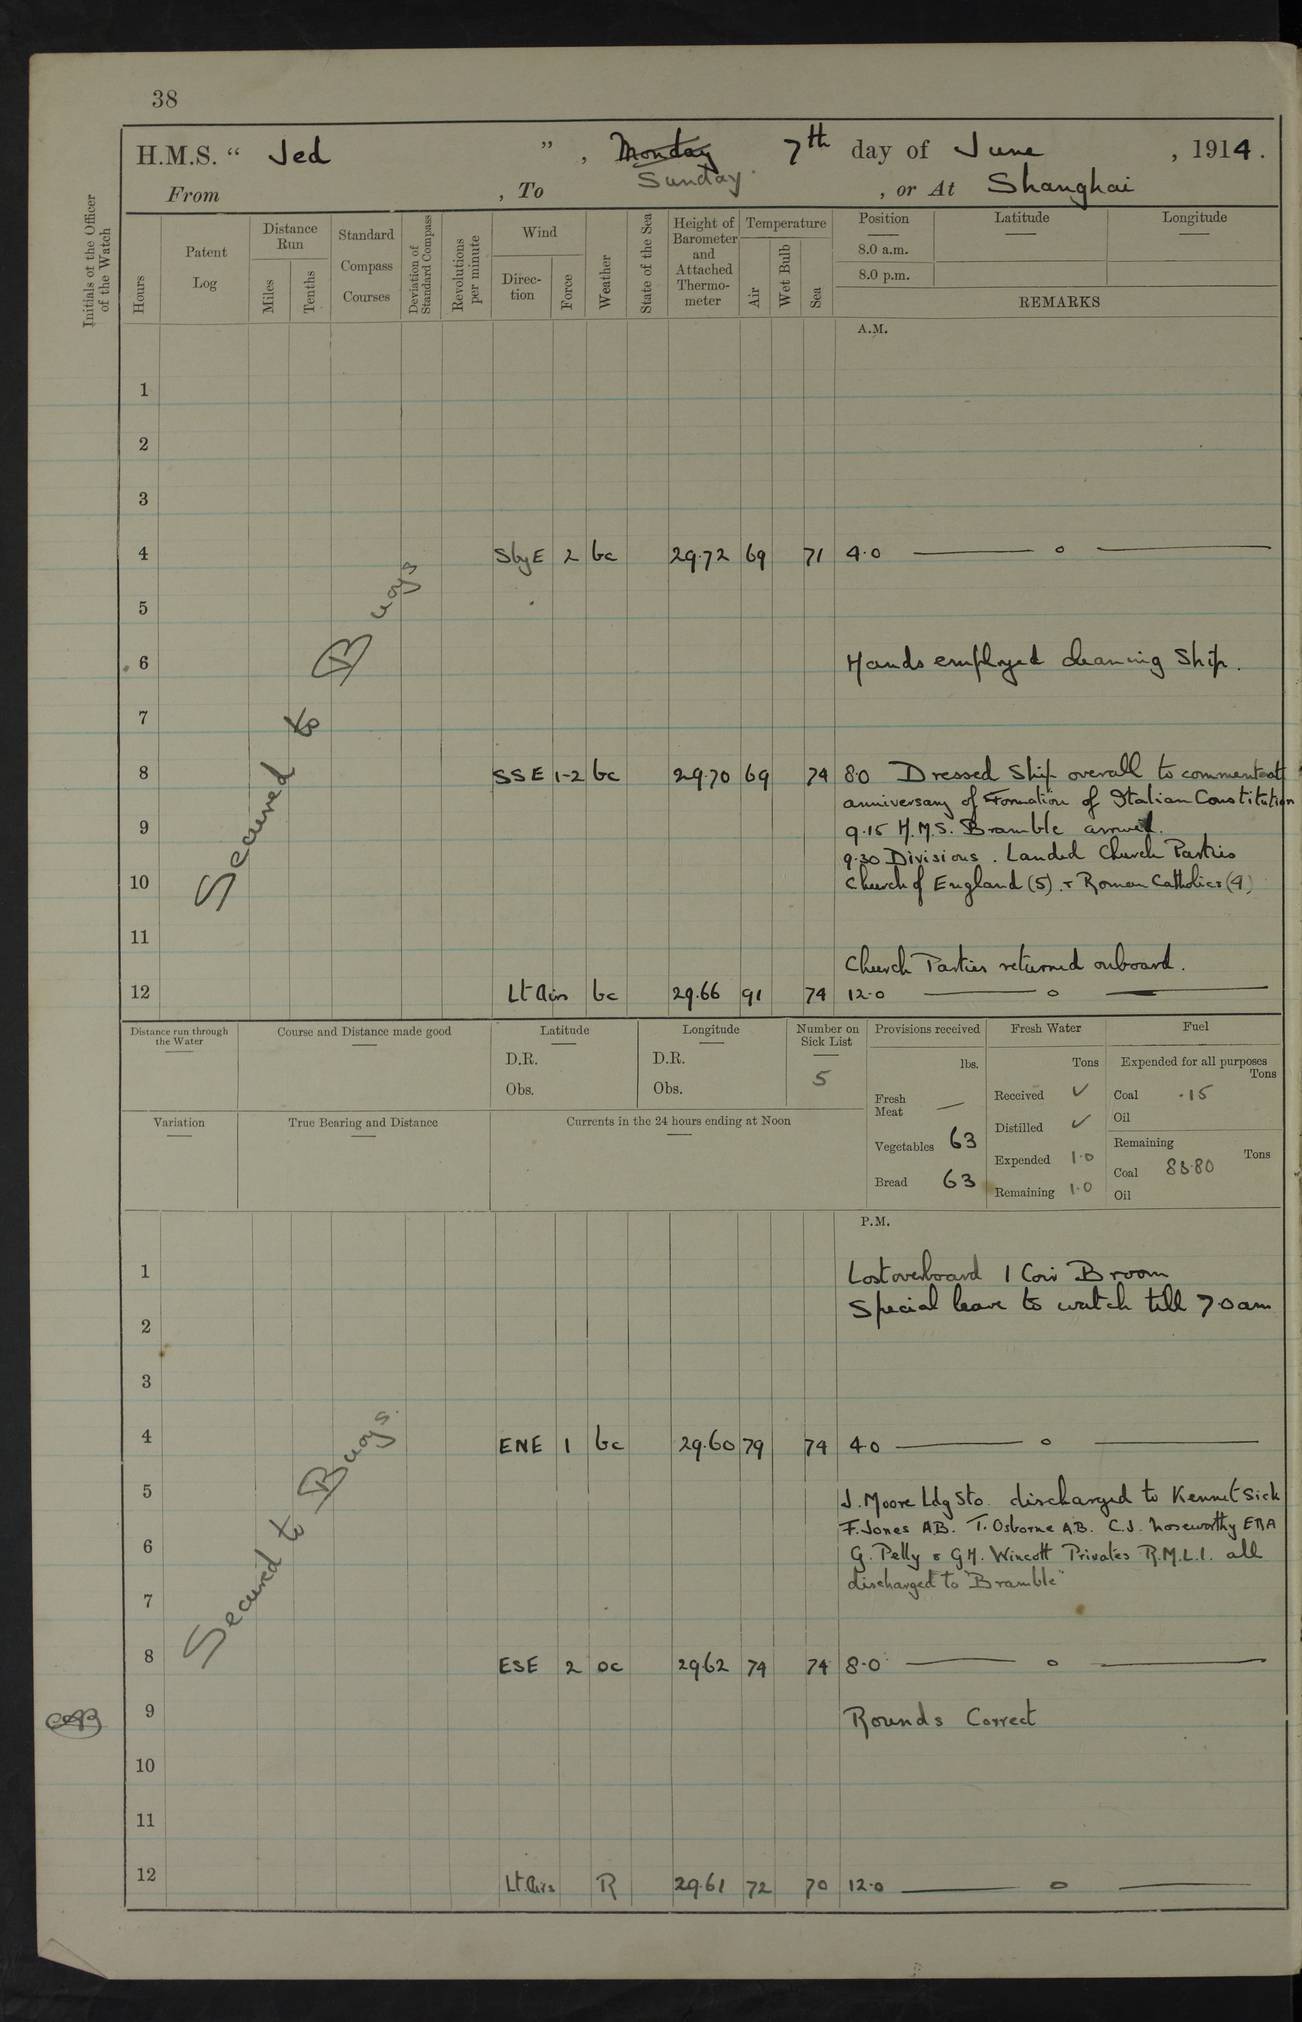 38
H.M.S. “ Jed ” , Monday 7th day of June , 1914 .
Sunday
From , To , or At Shanghai
Initials of the Officer of the Watch
Hours
Patent Log
Distance Run
Miles
Tenths
Standard Compass Courses
Deviation of Standard Compass
Revolutions per minute
Wind
Direc- tion
Force
Weather
State of the Sea
Height of Barometer and Attached Thermo- meter
Temperature
Air
Wet Bulb
Sea
Position Latitude Longitude
8.0 a.m.
8.0 p.m.
REMARKS
A.M.
1
2
3
4 SbyE 2 bc 29.72 69 71 4.0 — o —
5
6 Hands employed cleaning Ship.
7
8 SSE 1-2 bc 29.70 69 74 8.0 Dressed Ship overall to
anniversary of Formation of Italian Constitution
9 9.15 H.M.S. Bramble arrived.
9.30 Divisions. Landed Church Parties
10 Church of England (5) + Roman Catholics (4)
Secured to Buoys
11
Church Parties returned onboard.
12 Lt Airs bc 29.66 91 74 12.0 — o —
Distance run through the Water
Course and Distance made good
Latitude
D.R.
Obs.
Longitude
D.R.
Obs.
Number on Sick List
5
Provisions received
lbs.
Fresh Meat —
Vegetables 63
Bread 63
Fresh Water
Tons
Received ✓
Distilled ✓
Expended 1.0
Remaining 1.0
Fuel
Expended for all purposes
Tons
Coal .15
Oil
Remaining
Tons
Coal 88.80
Oil
Variation
True Bearing and Distance
Currents in the 24 hours ending at Noon
P.M.
1 Lost overboard 1 Coir Broom
Special leave to watch till 7.0 am
2
3
4 ENE 1 bc 29.60 79 74 4.0 — o —
5 J. Moore Ldg Sto. discharged to Kennet Sick
F. Jones AB. T. Osborne A.B. C.J. Noseworthy ERA
6 G. Pelly & G.H. Wincott Privates R.M.L.I. all
discharged to "Bramble"
7
Secured to Buoys.
8 ESE 2 oc 29.62 74 74 8.0 — o —
9 Rounds Correct
10
11
12 Lt. Airs R 29.61 72 70 12.0 — o —